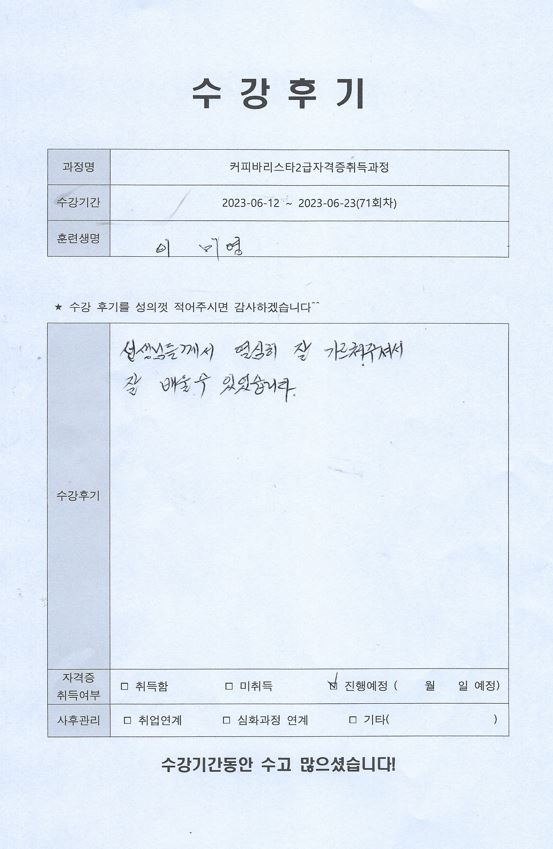 수강후기
과정명 커피바리스타2급자격증취득과정
수강기간 2023-06-12 ~ 2023-06-23(71회차)
훈련생명 이 미영
★ 수강 후기를 성의껏 적어주시면 감사하겠습니다^^
수강후기
선생님들께서 열심히 잘 가르쳐주셔서
잘 배울 수 있었습니다.
자격증
취득여부 □ 취득함 □ 미취득 ☑ 진행예정 ( 월 일 예정)
사후관리 □ 취업연계 □ 심화과정 연계 □ 기타( )
수강기간동안 수고 많으셨습니다!